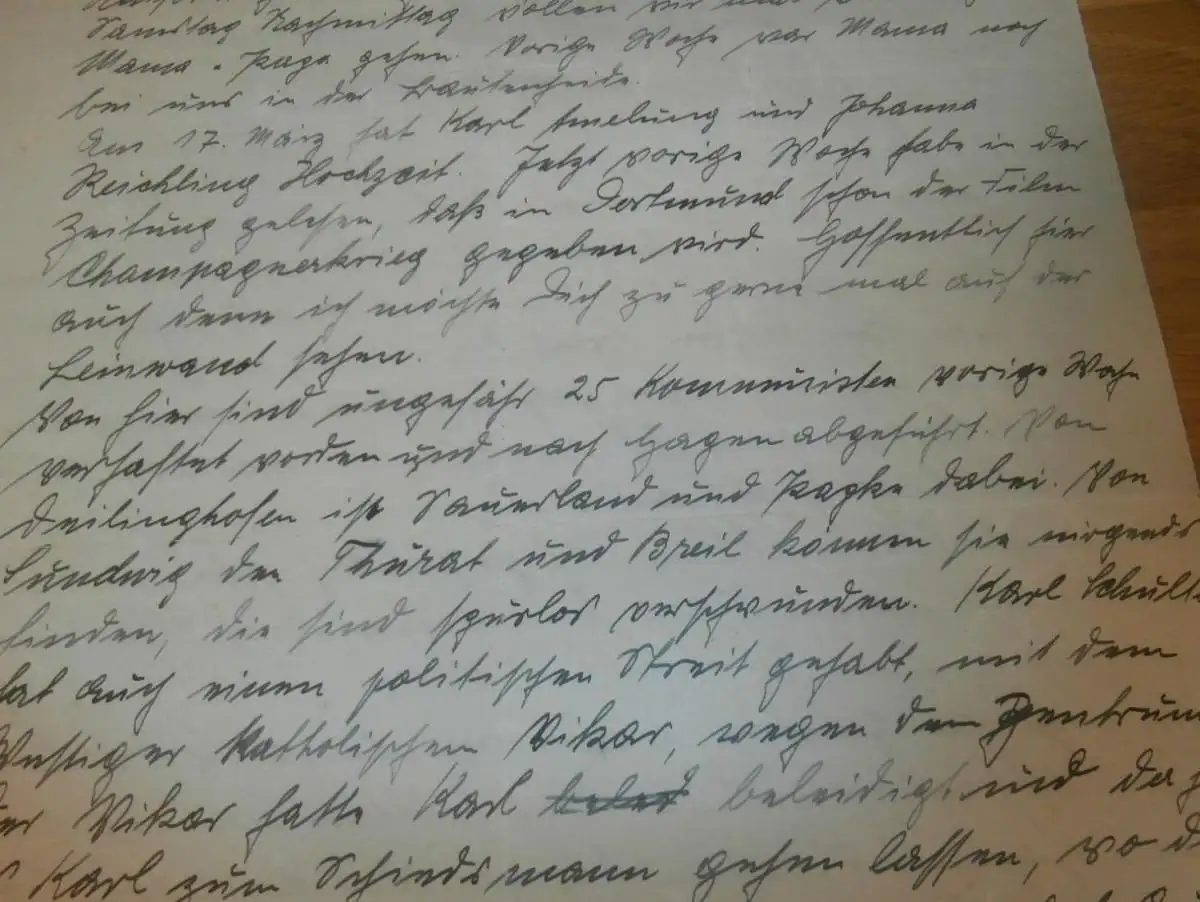 Samstag Nachmittag wollen wir
Mama u. Papa gehen. Vorige Woche war Mama noch
bei uns in der Brautenheide.
Am 17. März hat Karl Amelung und Johanna
Reichling Hochzeit. Jetzt vorige Woche habe in der
Zeitung gelesen, daß in Dortmund schon der Film
Champagnerkrieg gegeben wird. Hoffentlich hier
auch denn ich möchte Dich zu gerne mal auf der
Leinwand sehen.
Von hier sind ungefähr 25 Kommunisten vorige Woche
verhaftet worden und nach Hagen abgeführt. Von
Deilinghofen ist Sauerland und Papke dabei. Von
Sundwig den Thurat und Breil können sie nirgends
finden, die sind spurlos verschwunden. Karl Schulte
hat auch einen politischen Streit gehabt, mit dem
Westiger Katholischen Vikar, wegen dem Zentrum
der Vikar hatte Karl beleidigt und da
Karl zum Schiedsmann gehen lassen, wo